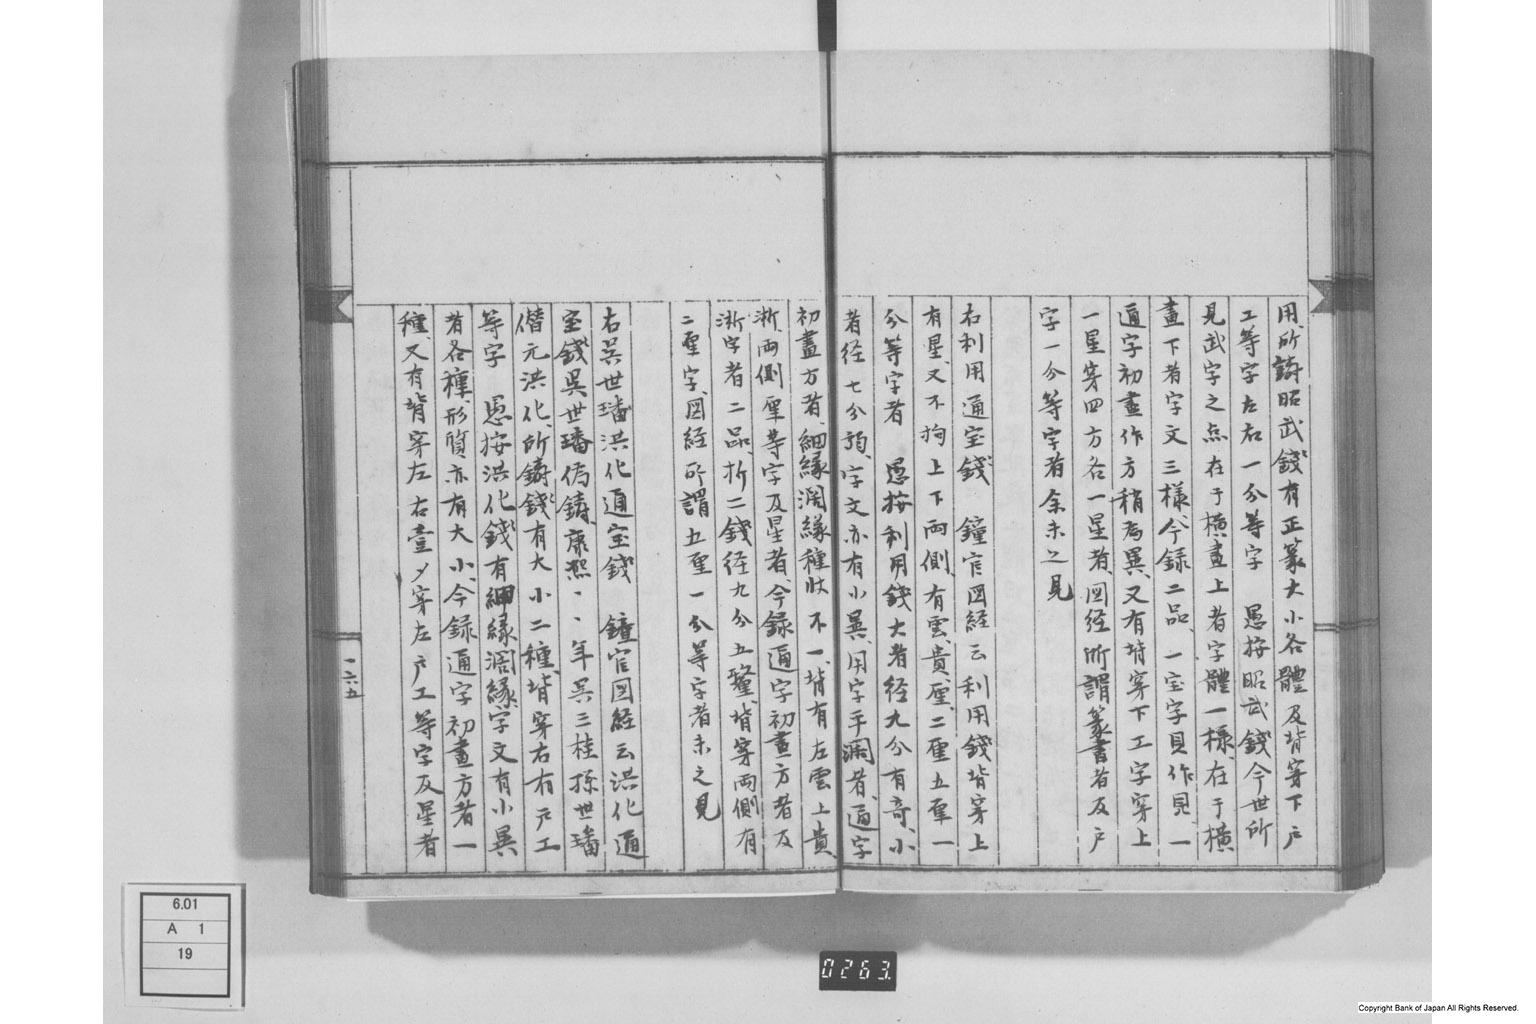 用、所鋳昭武錢有正篆大小各體及背穿下戸
工等字左右一分等字　愚按昭武錢今世所
見武字之点在于橫畫上者字體一樣、在于橫
畫下者字文三樣、今録二品、一宝字貝作見、一
通字初畫作方稍為異、又有背穿下工字穿上
一星穿四方各一星者、図経所謂篆書者及戸
字一分等字者余未之見
右利用通宝錢　鐘官図経云利用錢背穿上
有星、又不拘上下両側、有雲、貴厘、二厘五厘一
分等字者　愚按利用錢大者径九分有奇、小
者径七分頭、字文亦有小異、用字手濶者、通字
初畫方者、細緣濶緣種 不一、背有左雲上貴
浙、両側厘等字及星者、今録通字初畫方者及
浙字者二品、折二錢径九分五釐、背穿両側有
二厘字、図経所謂五厘一分等字者未之見
右呉世璠洪化通宝錢　鐘官図経云洪化通
宝錢呉世璠偽鋳、康熙、、年呉三桂孫世璠
僭元洪化、所鑄錢有大小二種、背穿右有戸工
等字　愚按洪化錢有細緣濶緣、字文有小異
者各種、形質亦有大小、今録通字初畫方者一
種、又有背穿左右壹 穿左戸工等字及星者
一六五
6.01
A 1
19
0263.
Copyright Bank of Japan All Rights Reserved.